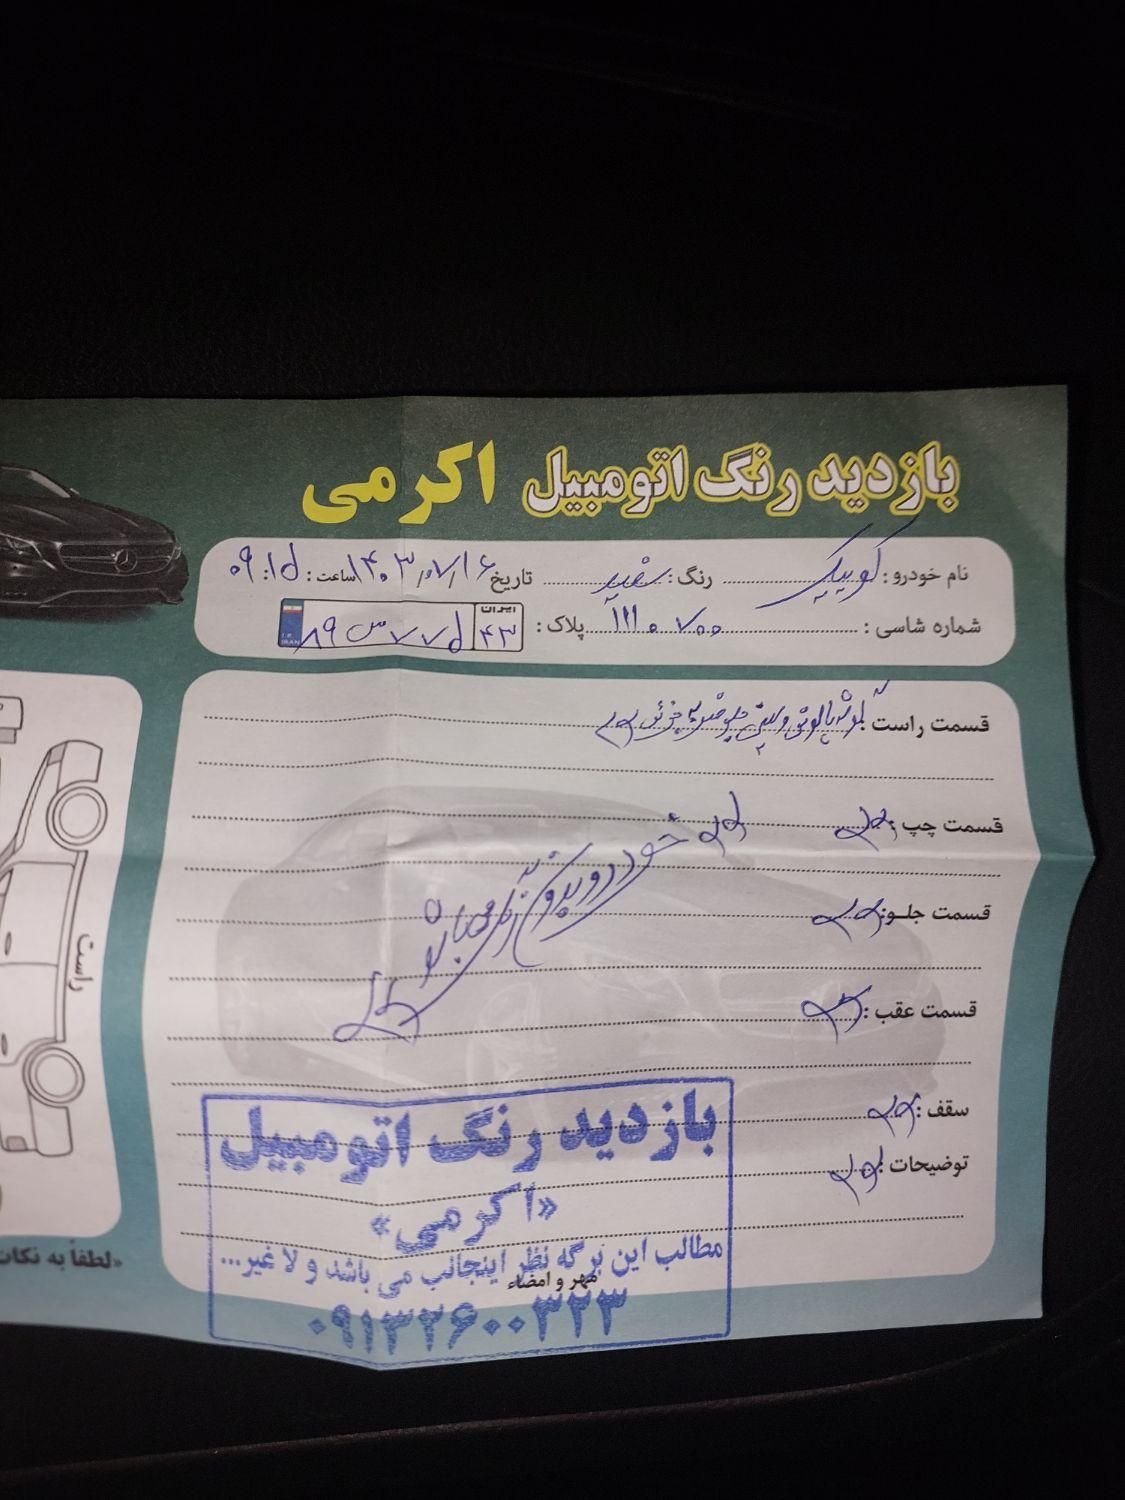 بازدید رنگ اتومبیل اکرمی
نام خودرو: کوییک رنگ: سفید تاریخ ۱۴۰۳/۰۷/۱۶ ساعت: ۰۹:۱۵
شماره شاسی: ۱۱۱۰۷۰۰ پلاک: ایران ۴۳ ۷۷۵ س ۸۹
I.R. IRAN
قسمت راست: گوشه پالونی و سینی جلو ضربه جزئی
قسمت چپ:
قسمت جلو:
خودرو بدون رنگ می باشد
قسمت عقب:
سقف:
توضیحات:
راست
بازدید رنگ اتومبیل
«اکرمی»
مطالب این برگه نظر اینجانب می باشد و لا غیر...
مهر و امضاء
۰۹۱۳۲۶۰۰۳۲۳
«لطفاً به نکات